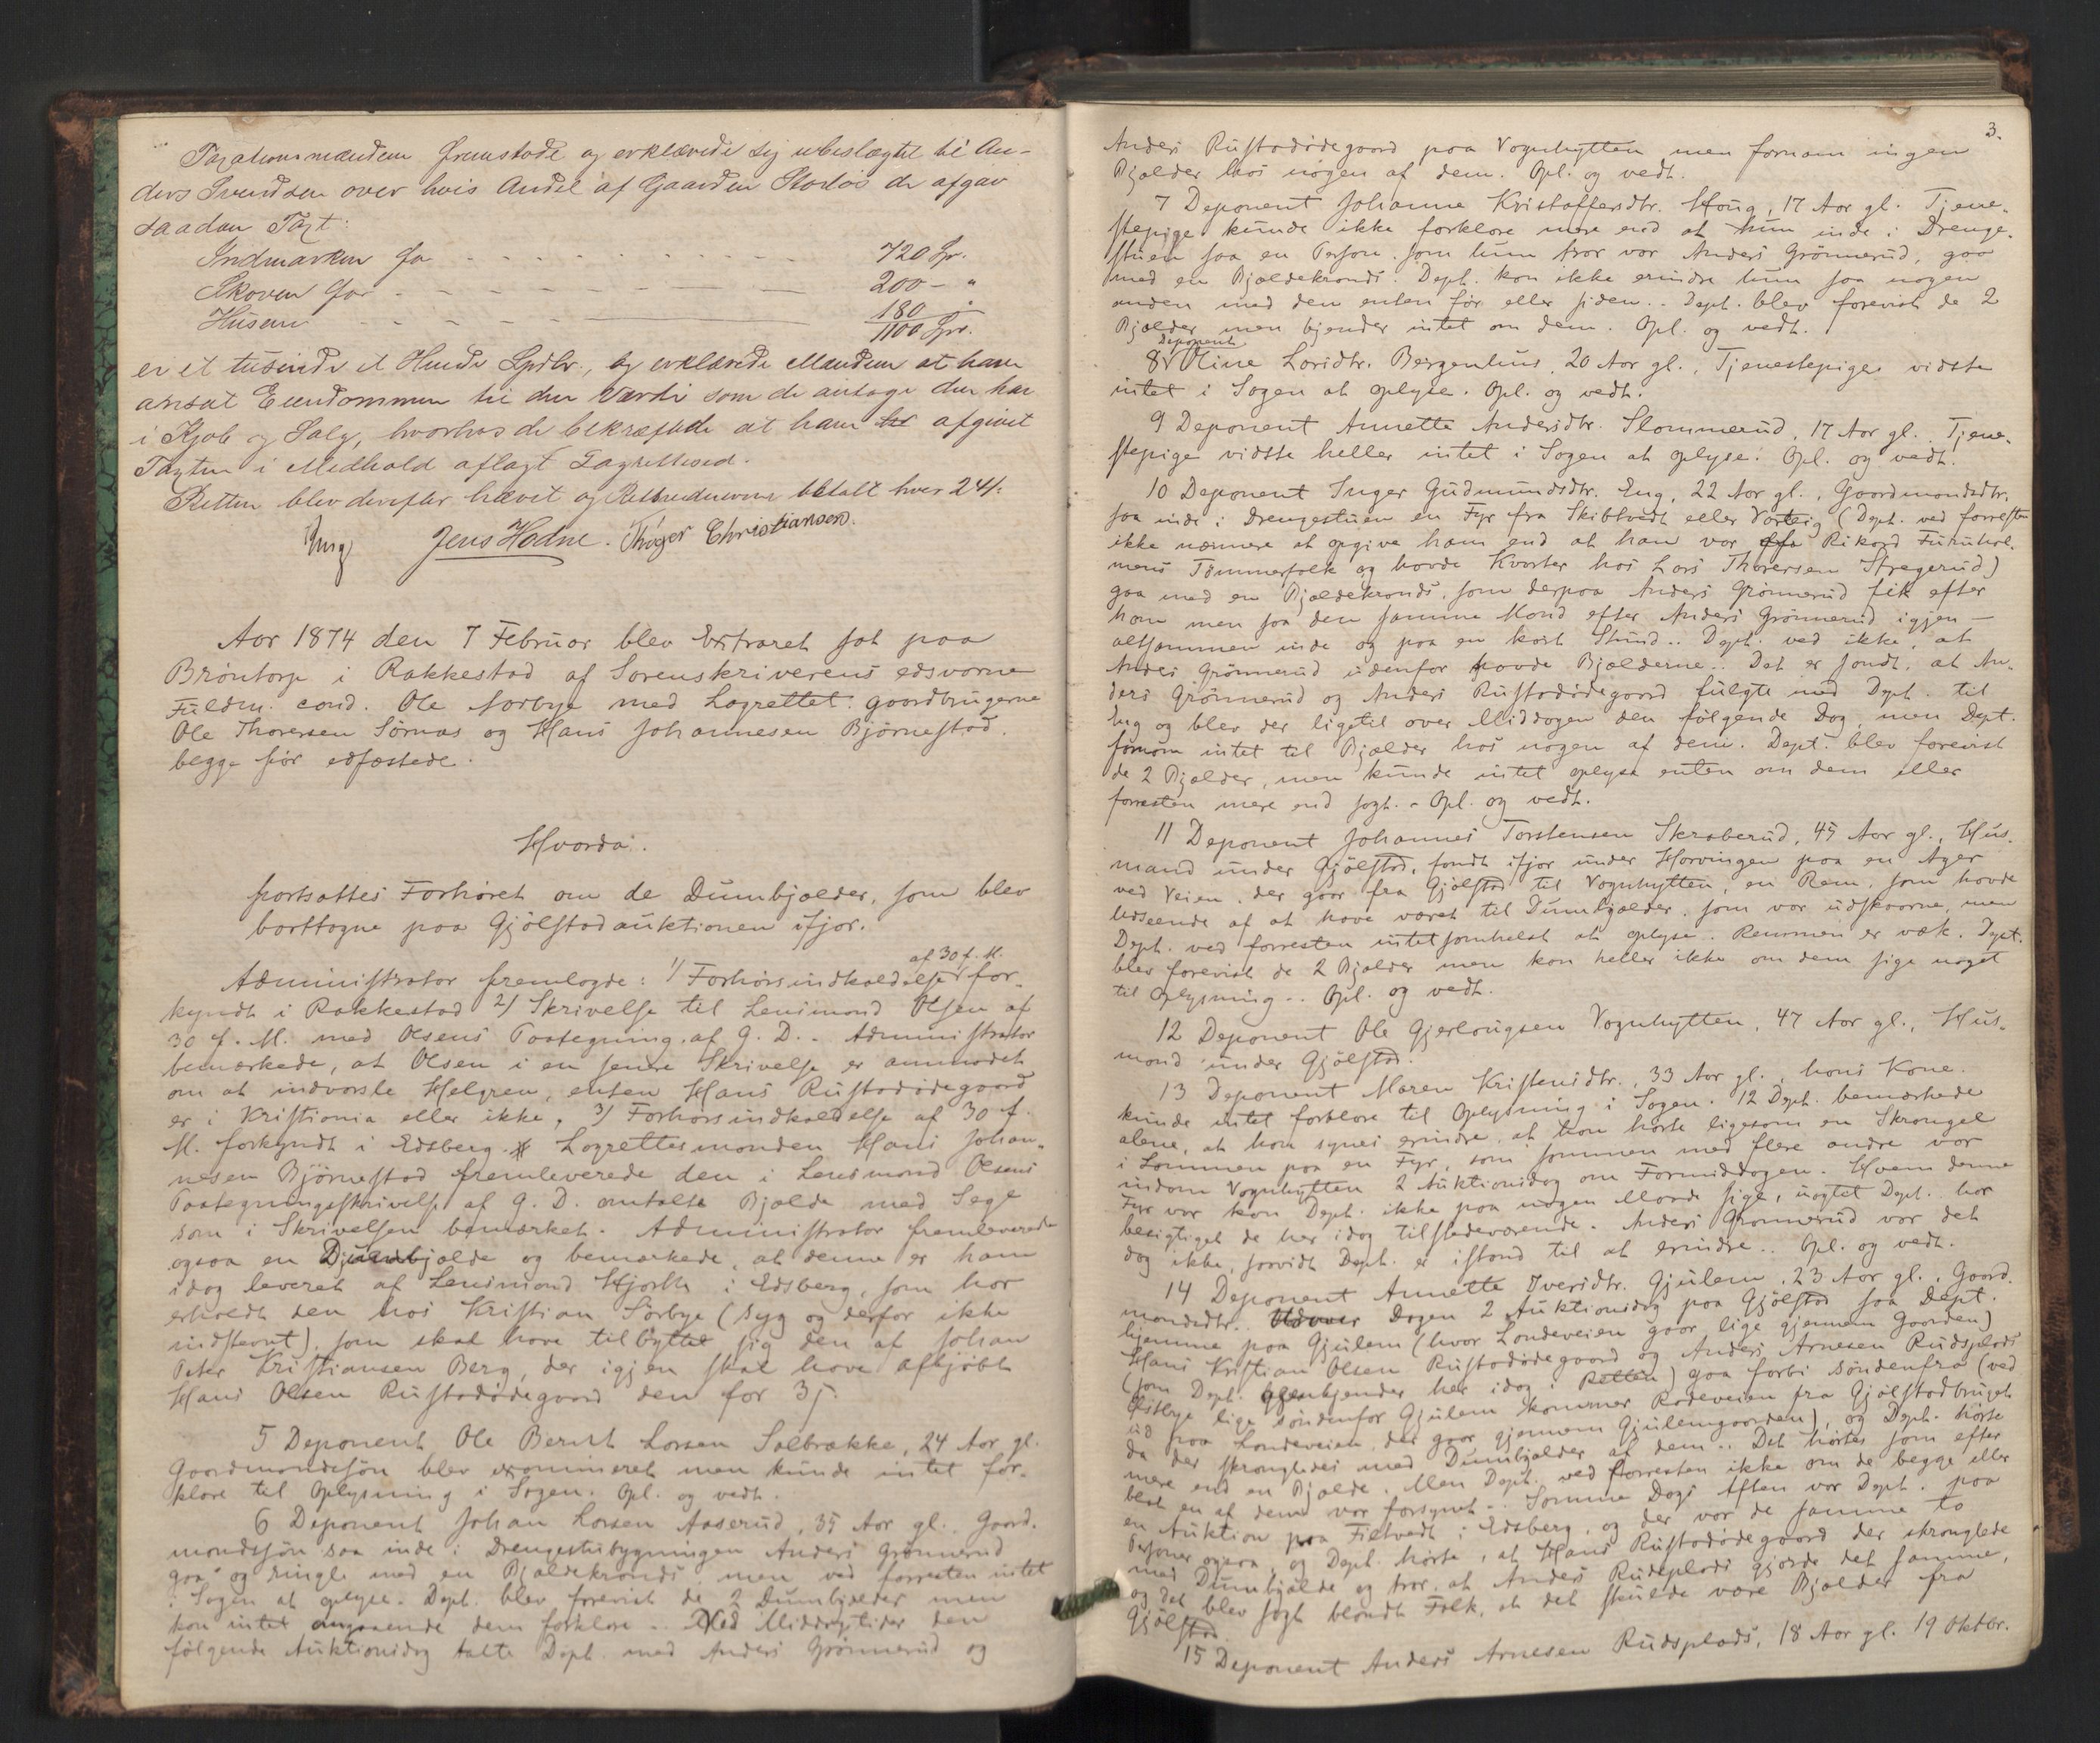 Taxationsmændene fremstode og erklærede sig ubeslægtet til An-
ders Svendsen over hvis Andel af Gaarden Stordøs de afgav
saadan Taxt:
Indmarken for - - - - - - - - - 720 Spr.
Skoven for - - - - - - - - - 200 - "
Husene - - - - - 180 "
1100 Spr.
er et tusinde et Hunde Spdlr., og erklærede Mændene at have
ansat Eiendommen til den Værdi som de antage den har
i Kjøb og Salg, hvorhos de bekræftede at have afgivet
Taxten i Medhold aflagt Lagrettesed.
Retten blev derefter hævet og Retsvidnerne betalt hver 24 s.
Jens Hodne. Thøger Christiansen.
Aar 1874 den 7 Februar blev Extraret sat paa
Brøntorp i Rakkestad af Sorenskriverens edsvorne
Fuldm. cand. Ole Norbye med Lagrettet: Gaardbrugerne
Ole Thoresen Sørnæs og Hans Johannesen Bjørnestad.
begge før edfæstede.
Hvorda:
fortsattes Forhøret om de Dumbjælder, som blev
borttagne paa Gjølstadauktionen ifjor.
af 30 f. M.
Administrator fremlagde: 1/ Forhørsindkaldelse for-
kyndt i Rakkestad 2/ Skrivelse til Lensmand Olsen af
30 f. M. med Olsens Paategning af G. D.. Administrator
bemærkede, at Olsen i en senere Skrivelse er anmodet
om at indvarsle Helgren, enten Hans Rustadødegaard
er i Kristiania eller ikke, 3/ Forhørsindkaldelse af 30 f.
M. forkyndt i Edsberg. Lagrettesmanden Hans Johan-
nesen Bjørnestad fremleverede den i Lensmand Olsens
Paategningsskrivelse af G. D. omtalte Bjælde med Sege
som i Skrivelsen bemærket. Administrator fremleverede
ogsaa en Dumbjælde og bemærkede, at denne er ham
idag leveret af Lensmand Hjorth i Edsberg, som har
erholdt den hos Kristian Sørbye (syg og derfor ikke
indstevnt), som skal have tilbyttet sig den af Johan
Peter Kristiansen Berg, der igjen skal have afkjøbt
Hans Olsen Rustadødegaard den for 3 s.
5 Deponent Ole Bernt Larsen Solbrække, 24 Aar gl.
Gaardmandssøn blev examineret men kunde intet for-
klare til Oplysning i Sagen. Opl. og vedt.
6 Deponent Johan Larsen Aaserud, 35 Aar gl. Gaard-
mandssøn saa inde i Drengestubygningen Anders Grønnerud
gaa og ringle med en Bjældekrands men ved forresten intet
i Sagen at oplyse. Dept. blev forevist de 2 Dumbjælder men
kan intet angaaende dem forklare.. Ved Middagstider den
følgende Auktionsdag talte Dept. med Anders Grønnerud og
3.
Anders Rustadødegaard paa Vognhytten men fornam ingen
Bjælder hos nogen af dem. Opl. og vedt.
7 Deponent Johanne Kristoffersdtr. Haug, 17 Aar gl. Tjene-
stepige kunde ikke forklare mere end at hun inde i Drenge-
stuen saa en Person, som hun tror var Anders Grønnerud, gaa
med en Bjældekrands. Dept. kan ikke erindre hun saa nogen
anden med den enten før eller siden.. Dept. blev forevist de 2
Bjælder men kjender intet om dem. Opl. og vedt.
Deponent
8 Oline Larsdtr. Bergenhus, 20 Aar gl., Tjenestepige vidste
intet i Sagen at oplyse. Opl. og vedt.
9 Deponent Annette Andersdtr. Slommerud, 17 Aar gl. Tjene-
stepige vidste heller intet i Sagen at oplyse. Opl. og vedt.
10 Deponent Inger Gudmundsdtr. Eng, 22 Aar gl., Gaardmandsdtr.
saa inde i Drengestuen en Fyr fra Skibtvedt eller Varteig (Dept. ved forresten
ikke nærmere at opgive ham end at han var Rikard Furuhol-
mens Tømmerfolk og havde Kvarter hos Lars Thoresen Stregerud)
gaa med en Bjældekrands, som derpaa Anders Grønnerud fik efter
ham men saa den samme Mand efter Anders Grønnerud igjen –
altsammen inde og paa en kort Stund.. Dept. ved ikke, at
Anders Grønnerud udenfor havde Bjælderne.. Det er sandt, at An-
ders Grønnerud og Anders Rustadødegaard fulgte med Dept. til
Eng og blev der ligetil over Middagen den følgende Dag, men Dept.
fornam intet til Bjælder hos nogen af dem. Dept. blev forevist
de 2 Bjælder, men kunde intet oplyse enten om dem eller
forresten mere end sagt. - Opl. og vedt.
11 Deponent Johannes Torstensen Skraberud, 45 Aar gl., Hus-
mand under Gjølstad, fandt ifjor under Harvingen paa en Ager
ved Veien, der gaar fra Gjølstad til Vognhytten, en Rem, som havde
Udseende af at have været til Dumbjælder, som var udskaarne, men
Dept. ved forresten intetsomhelst at oplyse. Remmen er væk. Dept.
blev forevist de 2 Bjælder men kan heller ikke om dem sige noget
til Oplysning.. Opl. og vedt.
12 Deponent Ole Gjerlaugsen Vognhytten, 47 Aar gl., Hus-
mand under Gjølstad.
13 Deponent Maren Kristensdtr., 33 Aar gl., hans Kone.
kunde intet forklare til Oplysning i Sagen. 12 Dept. bemærkede
alene, at han synes erindre, at han hørte ligesom en Skrangel
i Lommen paa en Fyr, som sammen med flere andre var
indom Vognhytten 2 Auktionsdag om Formiddagen. Hvem denne
Fyr var kan Dept. ikke paa nogen Maade sige, uagtet Dept. har
besigtiget de her idag tilstedeværende. Anders Grønnerud var det
dog ikke, forvidt Dept. er istand til at erindre.. Opl. og vedt.
14 Deponent Annette Iversdtr. Gjulem, 23 Aar gl., Gaard-
mandsdtr.. Udover Dagen 2 Auktionsdag paa Gjølstad saa Dept.
hjemme paa Gjulem (hvor Landeveien gaar lige gjennem Gaarden)
Hans Kristian Olsen Rustadødegaard og Anders Arnesen Rudsplads
(som Dept. gjenkjender her idag i Retten) gaa forbi søndenfra (ved
Østbye lige søndenfor Gjulem kommer Rodeveien fra Gjølstadbruget
ud paa Landeveien, der gaar gjennem Gjulemgaarden), og Dept. hørte
da der skrangledes med Dumbjælder af dem.. Det hørtes som efter
mere end en Bjælde. Men Dept. ved forresten ikke om de begge eller
blot en af dem var forsynet.. Samme Dags Aften var Dept. paa
en Auktion paa Fietvedt i Edsberg, og der var de samme to
Personer ogsaa, og Dept. hørte, at Hans Rustadødegaard der skranglede
med Dumbjælde og tror, at Anders Rudsplads gjorde det samme,
og det blev sagt blandt Folk, at det skulde være Bjælder fra
Gjølstad.
15 Deponent Anders Arnesen Rudsplads, 18 Aar gl. 19 Oktbr.